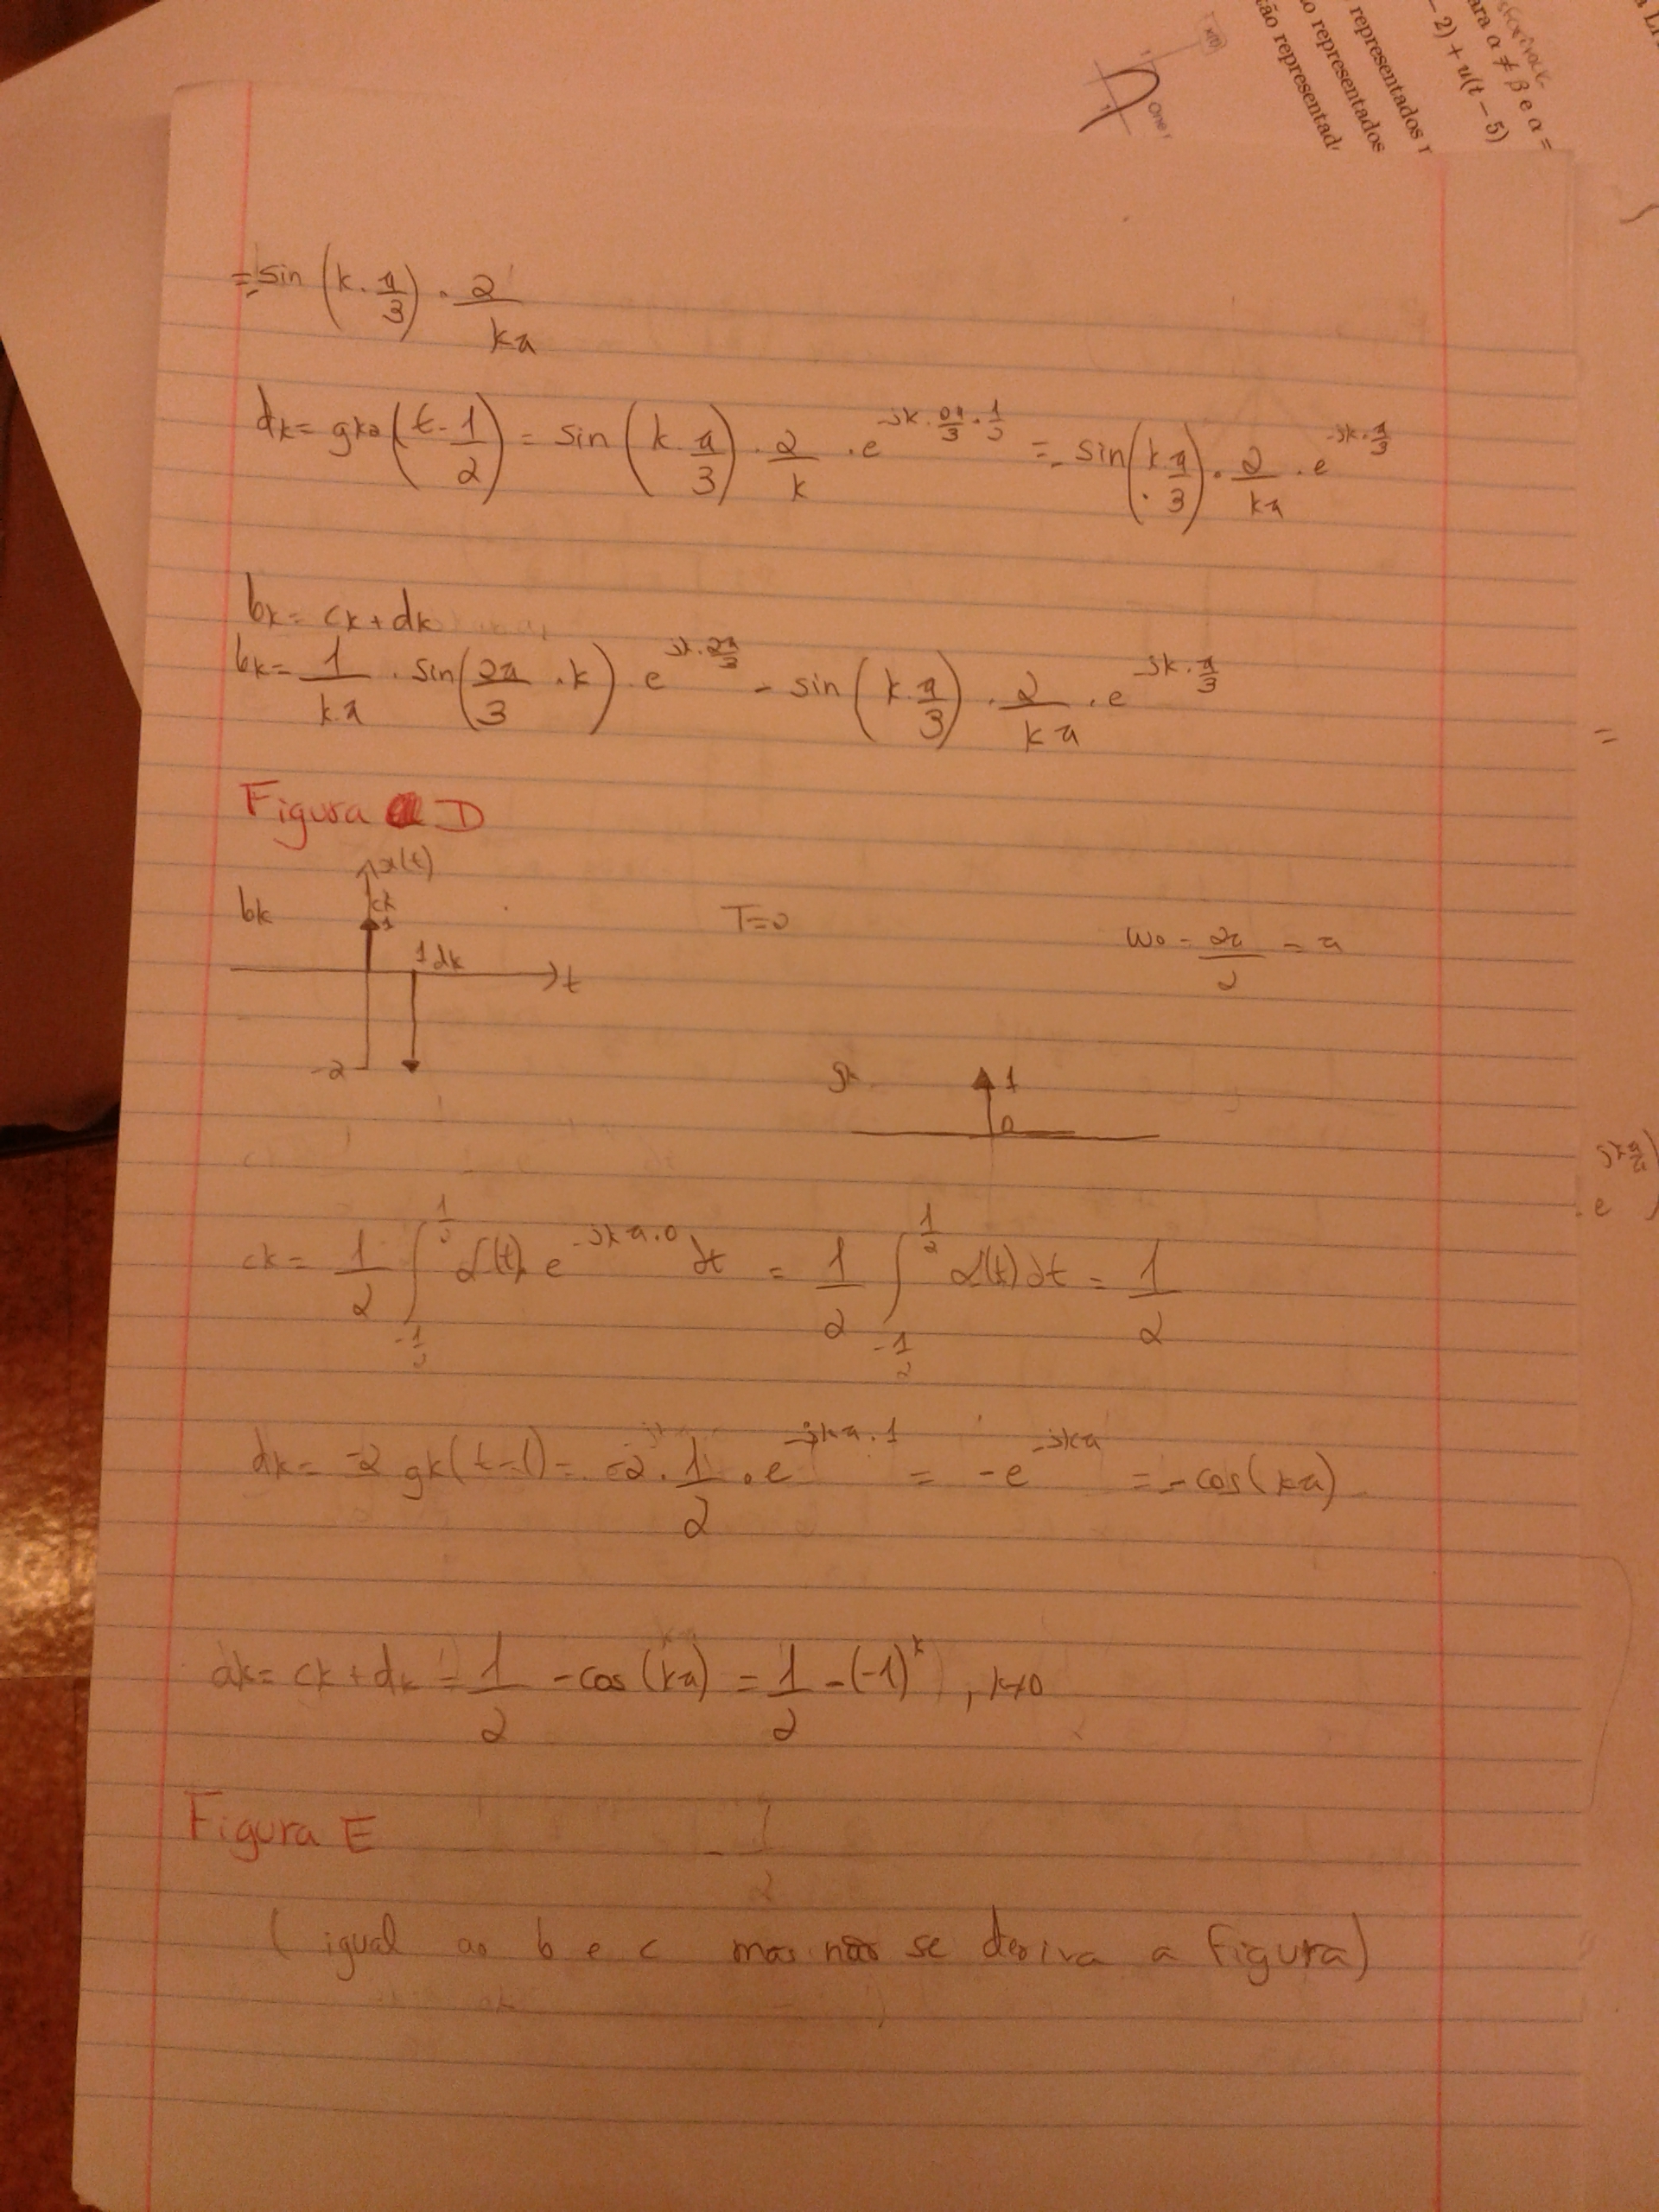 ão representad
o representados
representados r
- 2) + u(t - 5)
ara α ≠ β e α =
x(t)
One
= sin (k . π/3) . 2/kπ
dk = gk2 (t - 1/2) = sin (k . π/3) . 2/k . e^(-jk . 2π/3 . 1/2) = - sin (k . π/3) . 2/kπ . e^(-jk . π/3)
bk = ck + dk
bk = 1/kπ . sin (2π/3 . k) . e^(jk . 2π/3) - sin (k . π/3) . 2/kπ . e^(-jk . π/3)
=
Figura D
x(t)
bk ck 1 T=2 w0 = 2π/2 = π
1 dk t
-2 gk 1
0
ck = 1/2 ∫_(-1/2)^(1/2) δ(t) e^(-jkπ.0) dt = 1/2 ∫_(-1/2)^(1/2) δ(t) dt = 1/2
. e
dk = -2 gk(t-1) = -2 . 1/2 . e^(-jkπ.1) = -e^(-jkπ) = - cos(kπ)
ak = ck + dk = 1/2 - cos(kπ) = 1/2 - (-1)^k , k≠0
Figura E
( igual ao b e c mas não se deriva a figura)